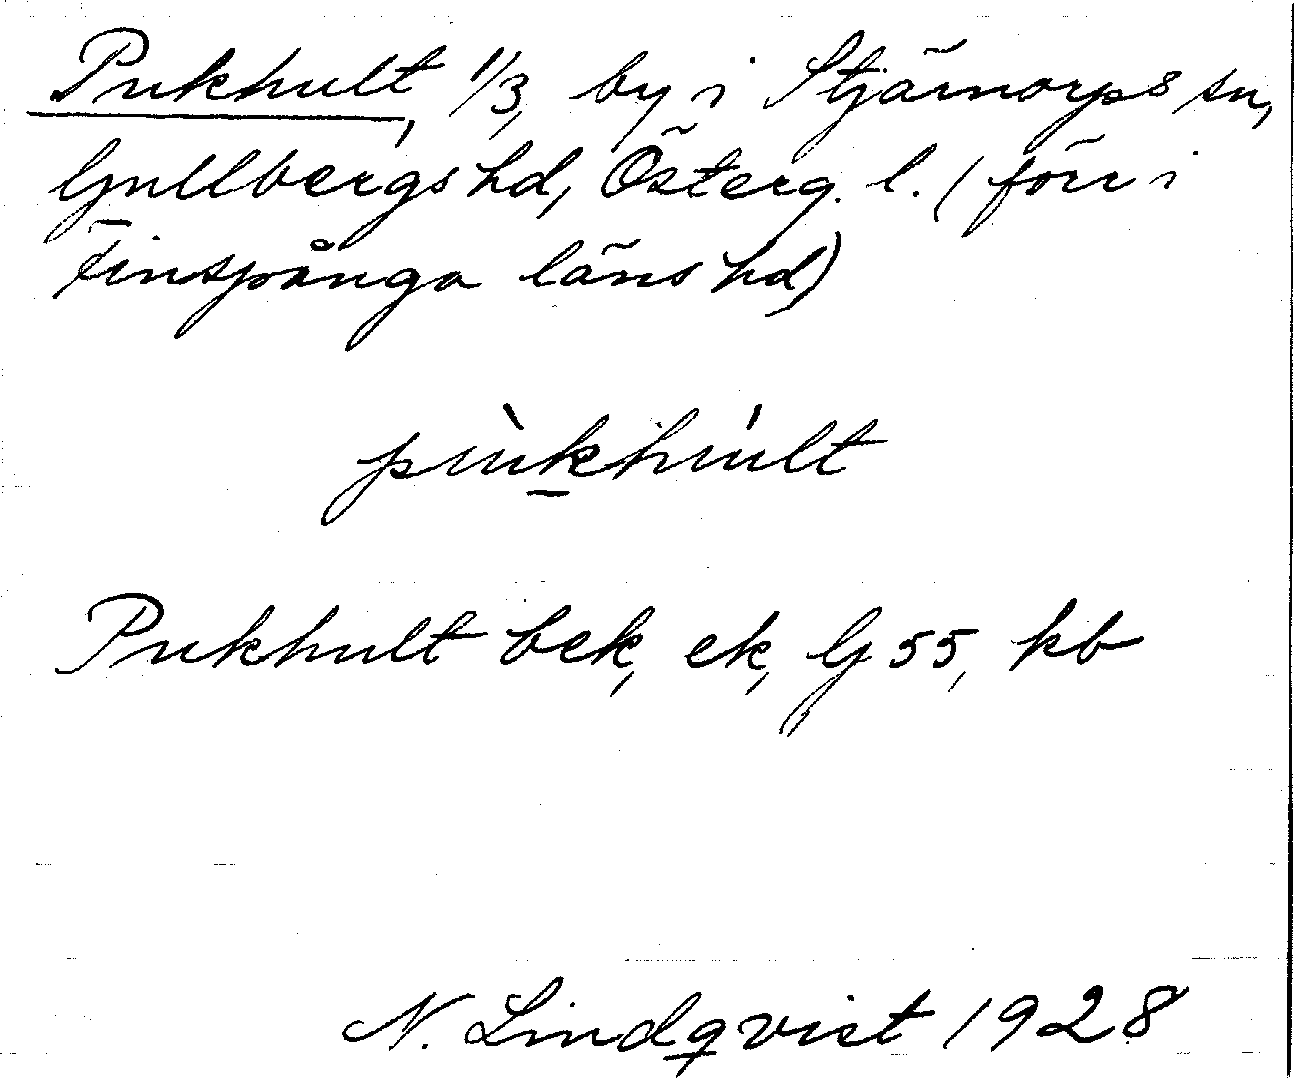 Pukhult, 1/3, by i Stjärnorps sn,
Gullbergs hd, Österg. l. (förr i
Finspånga läns hd)
pùkhúlt
Pukhult bek, ek, G 55, kb
N. Lindqvist 1928